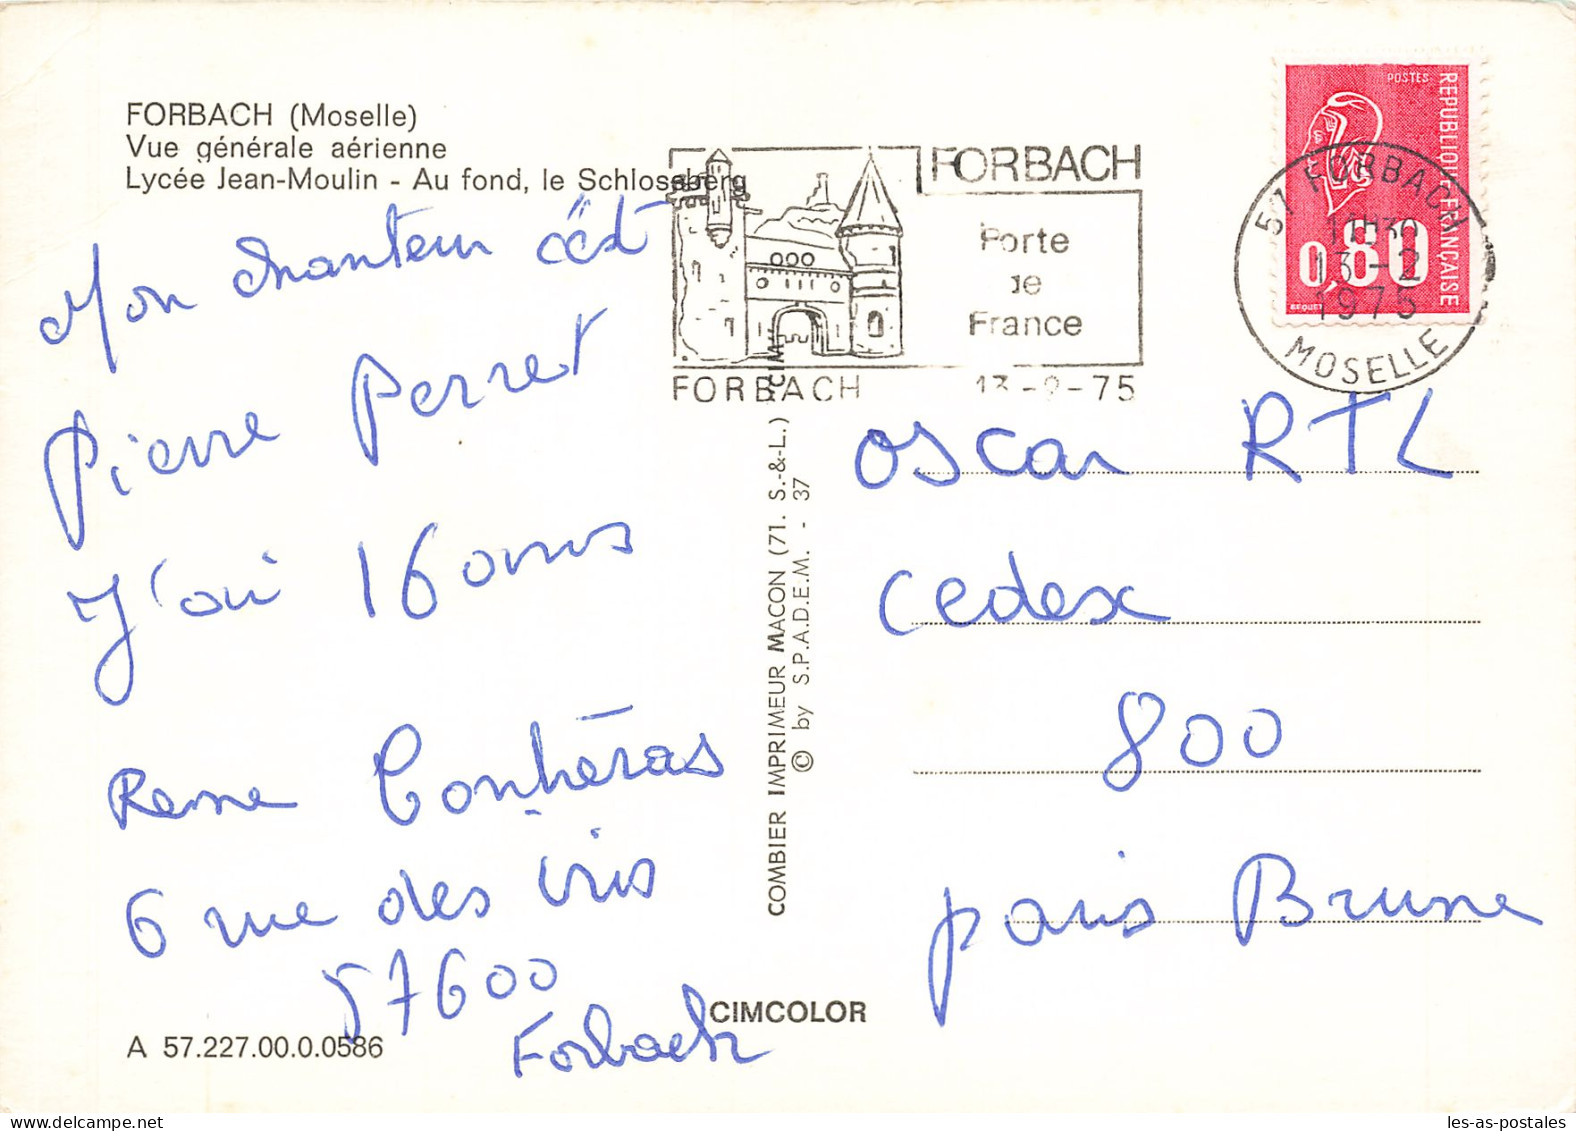 FORBACH (Moselle)
Vue générale aérienne
Lycée Jean-Moulin - Au fond, le Schlossberg
Mon chanteur c'est
Pierre Perret
J'ai 16 ans
Contréras
6 rue des iris
57600
Forbach
A 57.227.00.0.0586
CIMCOLOR
COMBIER IMPRIMEUR MACON (71. S.-&-L.) "CIM"
© by S.P.A.D.E.M. - 37
FORBACH
Porte
de
France
FORBACH 13-2-75
POSTES
REPUBLIQUE FRANÇAISE
0,80
BEQUET
57 FORBACH
11H30
13-2
1975
MOSELLE
Oscar RTL
Cedex
800
paris Brune
les-as-postales